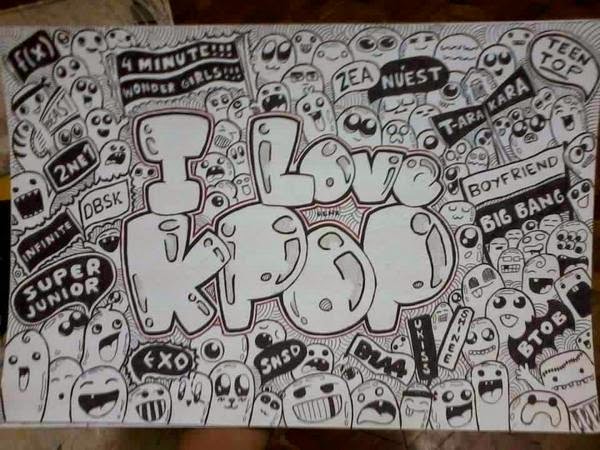 F(X)
4 MINUTE!!!
WONDER GIRLS!!!
ZEA
NUEST
TEEN
TOP
T-ARA
KARA
BEAST
2NE1
DBSK
INFINITE
SUPER
JUNIOR
I LOVE
KPOP
BOYFRIEND
BIG BANG
EXO
SNSD
B1A4
UKISS
SHINEE
BTOB